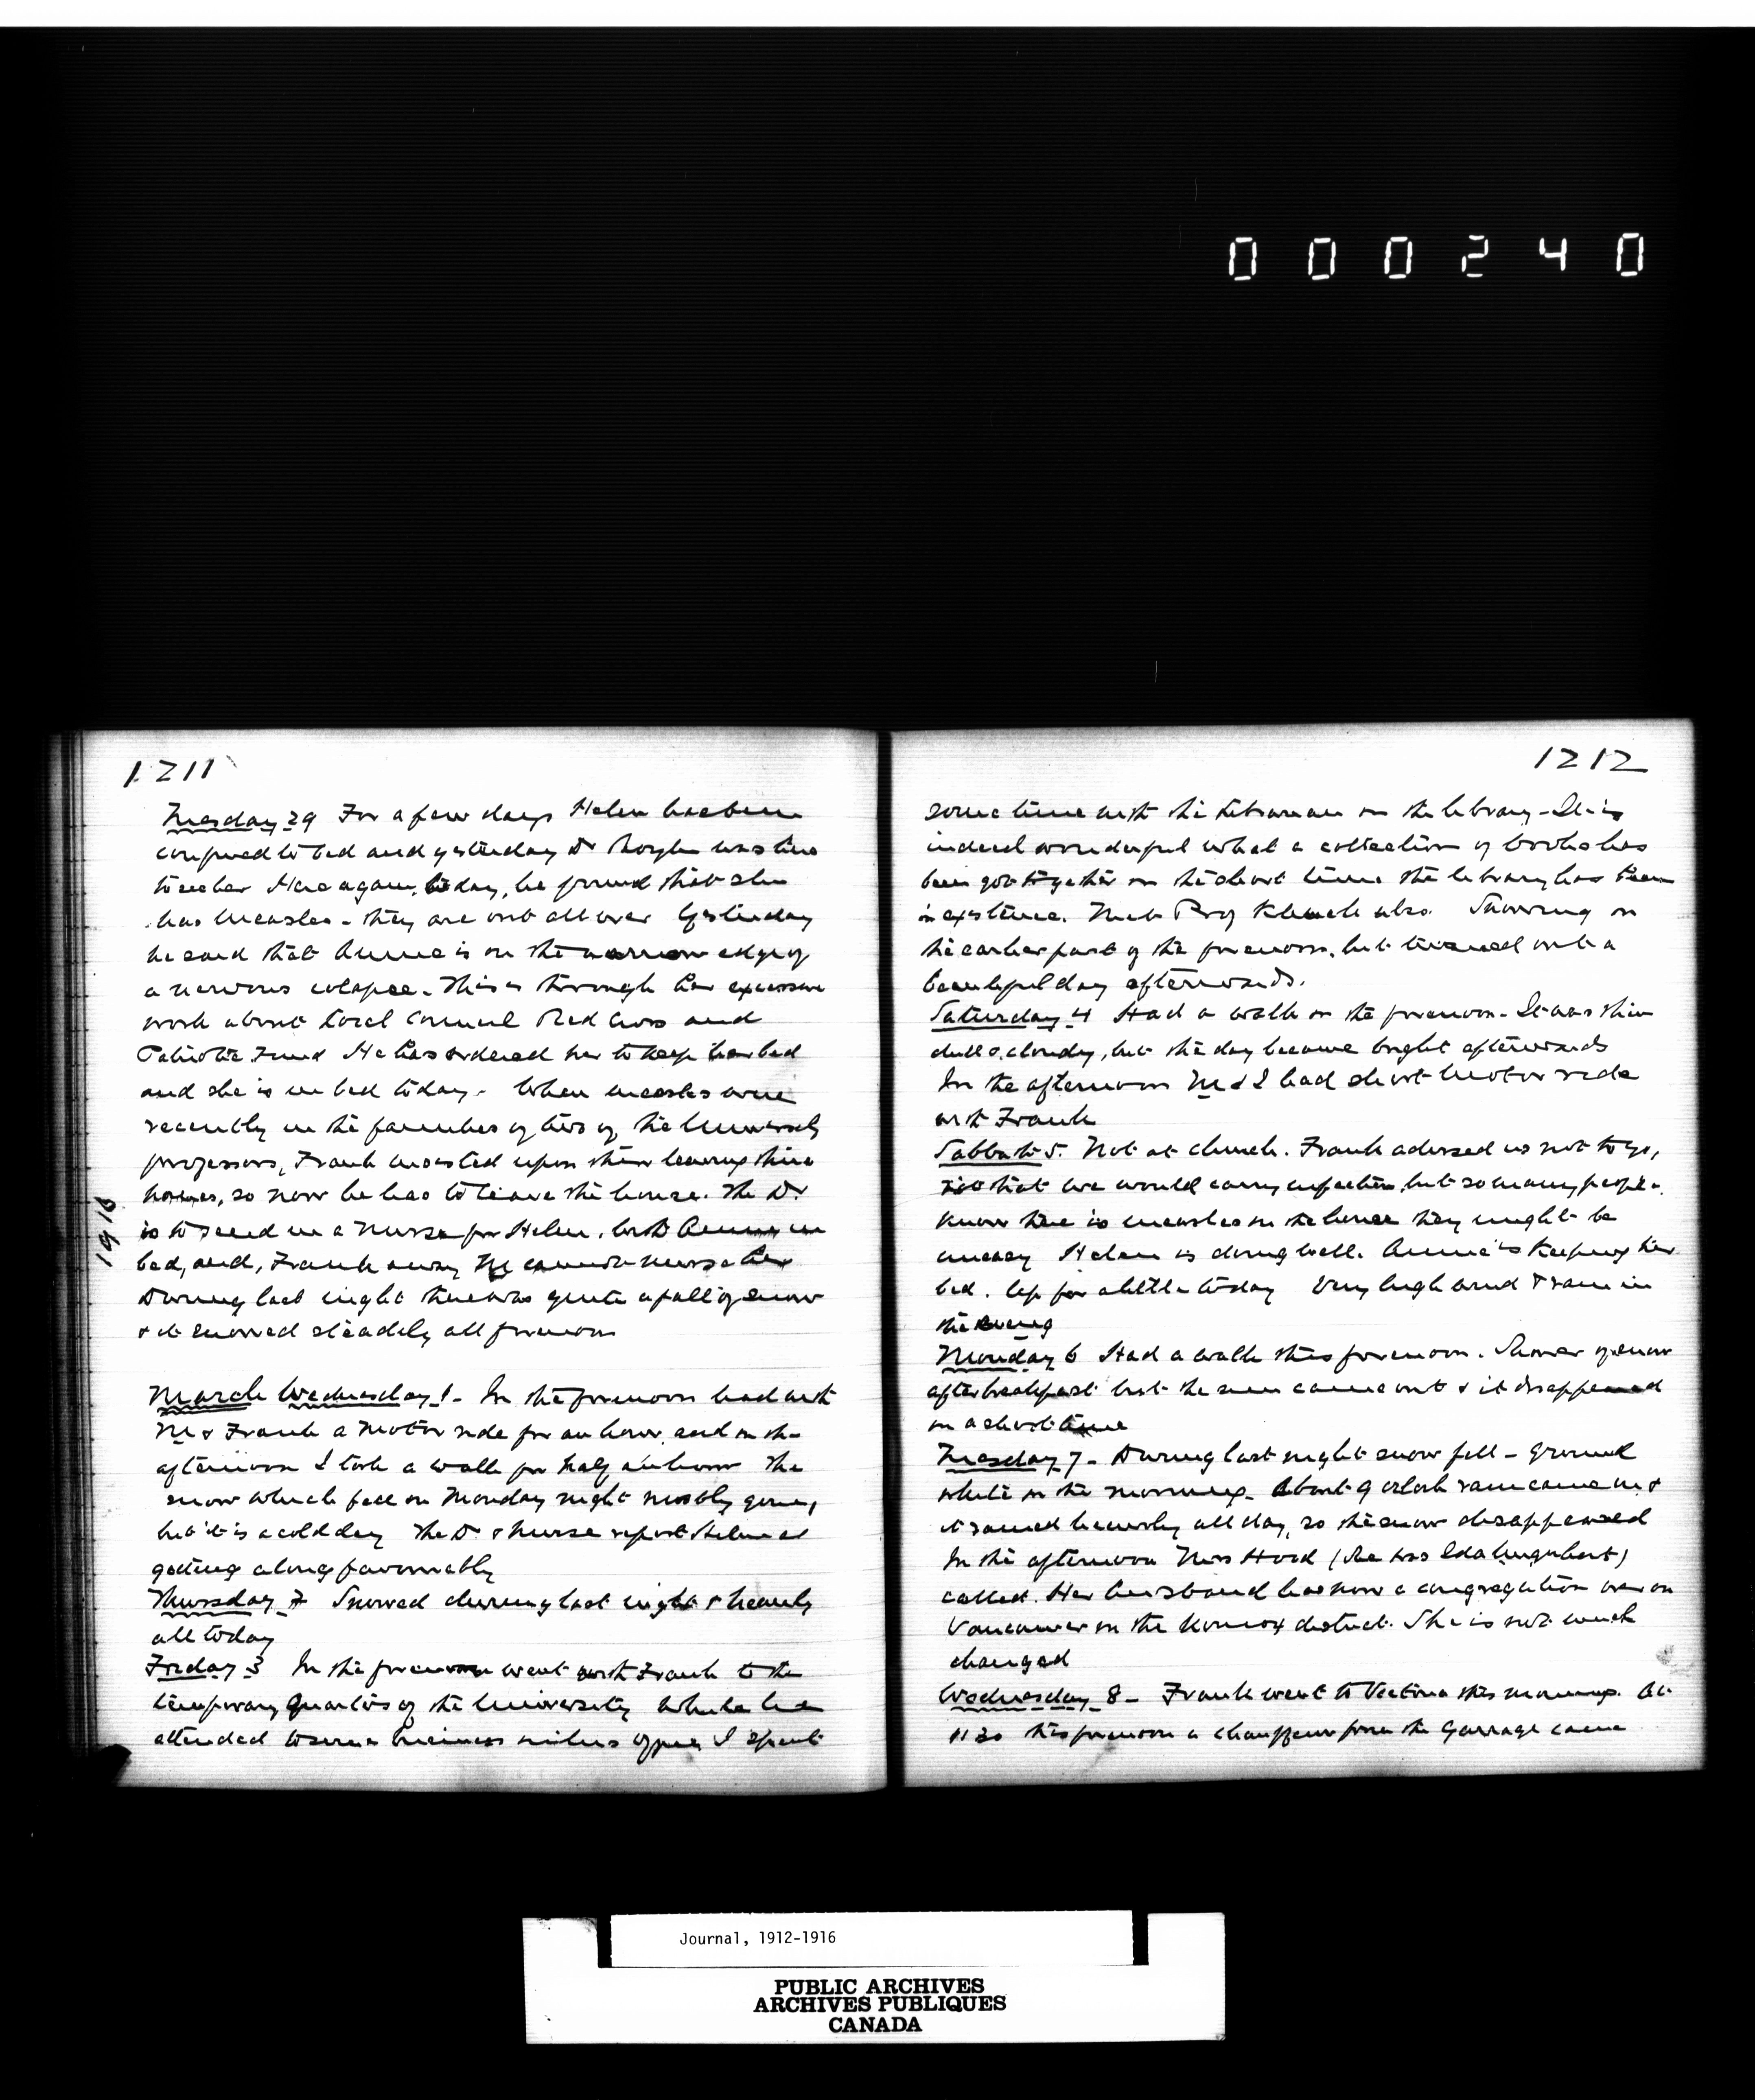 000240
1211
Tuesday 29 For a few days Helen has been
confined to bed and yesterday Dr was here
to see her Here again, today, he found that she
has measles - they are out all over Yesterday
he said that Annie is on the narrow edge of
a nervous colapse. This is through her excessive
work about Local Council Red Cross and
Patriotic Fund He has ordered her to keep her bed
and she is in bed today. When measles were
recently in the families of two of the University
professors, Frank insisted upon their leaving their
homes, so now he has to leave the house. The Dr
is to send in a nurse for Helen, with Annie in
bed, and, Frank away M cannot nurse her
During last night there was quite a fall of snow
& it snowed steadily all forenoon
1916
March Wednesday 1 - In the forenoon had with
M & Frank a motor ride for an hour, and in the
afternoon I took a walk for half an hour The
snow which fell on Monday night mostly gone,
but it is a cold day The Dr & nurse report Helen as
getting along favorably
Thursday 2 Snowed during last night & heavily
all today
Friday 3 In the forenoon went with Frank to the
temporary quarters of the University While he
attended to some business in his office I spent
1212
some time with the Librarian in the library - It is
indeed wonderful what a collection of books has
been got together in the short time the library has been
in existence. Met Prof also. Snowing in
the earlier part of the forenoon, but turned out a
beautiful day afterwards.
Saturday 4 Had a walk in the forenoon - It was then
dull & cloudy, but the day became bright afterwards
In the afternoon M & I had short motor ride
with Frank
Sabbath 5. Not at church. Frank advised us not to go,
not that we would carry infection, but so many people
know there is measles in the house they might be
uneasy Helen is doing well. Annie is keeping her
bed. Up for a little today Very high wind & rain in
the evening
Monday 6 Had a walk this forenoon. Shower of snow
after breakfast but the sun came out & it disappeared
in a short time
Tuesday 7 - During last night snow fell - ground
white in the morning. About 9 oclock rain came on &
it rained heavily all day, so the snow disappeared
In the afternoon Mrs Hood (she was Ida Urquhart)
called. Her husband has now a congregation over on
Vancouver in the Komox district. She is not much
changed
Wednesday 8 - Frank went to Victoria this morning. At
11 30 this forenoon a chauffeur from the Garrage came
Journal, 1912-1916
PUBLIC ARCHIVES
ARCHIVES PUBLIQUES
CANADA